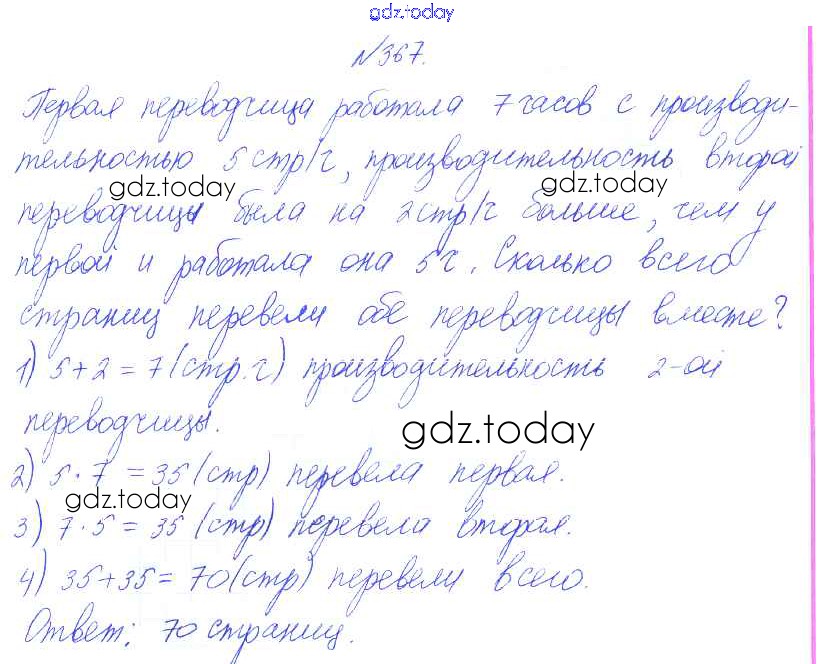 gdz.today
№367.
Первая переводчица работала 7 часов с производи-
тельностью 5 стр/ч, производительность второй
gdz.today gdz.today
переводчицы была на 2 стр/ч больше, чем у
первой и работала она 5 ч. Сколько всего
страниц перевели обе переводчицы вместе?
1) 5+2=7 (стр.ч) производительность 2-ой
переводчицы.
gdz.today
2) 5·7=35 (стр) перевела первая.
gdz.today
3) 7·5=35 (стр) перевела вторая.
4) 35+35=70 (стр) перевели всего.
Ответ: 70 страниц.